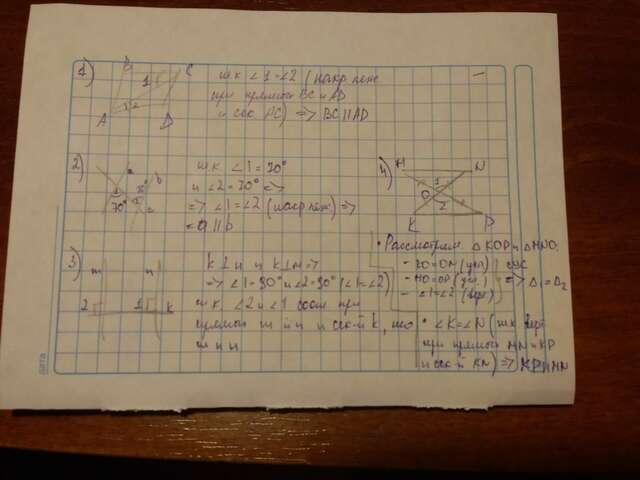 1)
B
C
1
2
A
D
т.к ∠1=∠2 (накр леж
при прямых BC и AD
и сек AC) => BC || AD
2)
a
b
70°
т.к ∠1=70°
и ∠2=70° =>
=> ∠1=∠2 (накр леж) =>
=> a || b
3)
m
n
2
1
k
k⊥n и k⊥m =>
=> ∠1=90° и ∠2=90° (∠1=∠2)
т.к ∠2 и ∠1 соот при
прямых m и n и сек-й k, то
m || n
4)
M
N
O
1
2
K
P
• Рассмотрим △KOP и △MNO:
- KO=ON (усл)
- MO=OP (усл.) => △1=△2
- ∠1=∠2 (верт)
• ∠K=∠N (т.к
при прямых MN и KP
и сек-й KN) => KP || MN